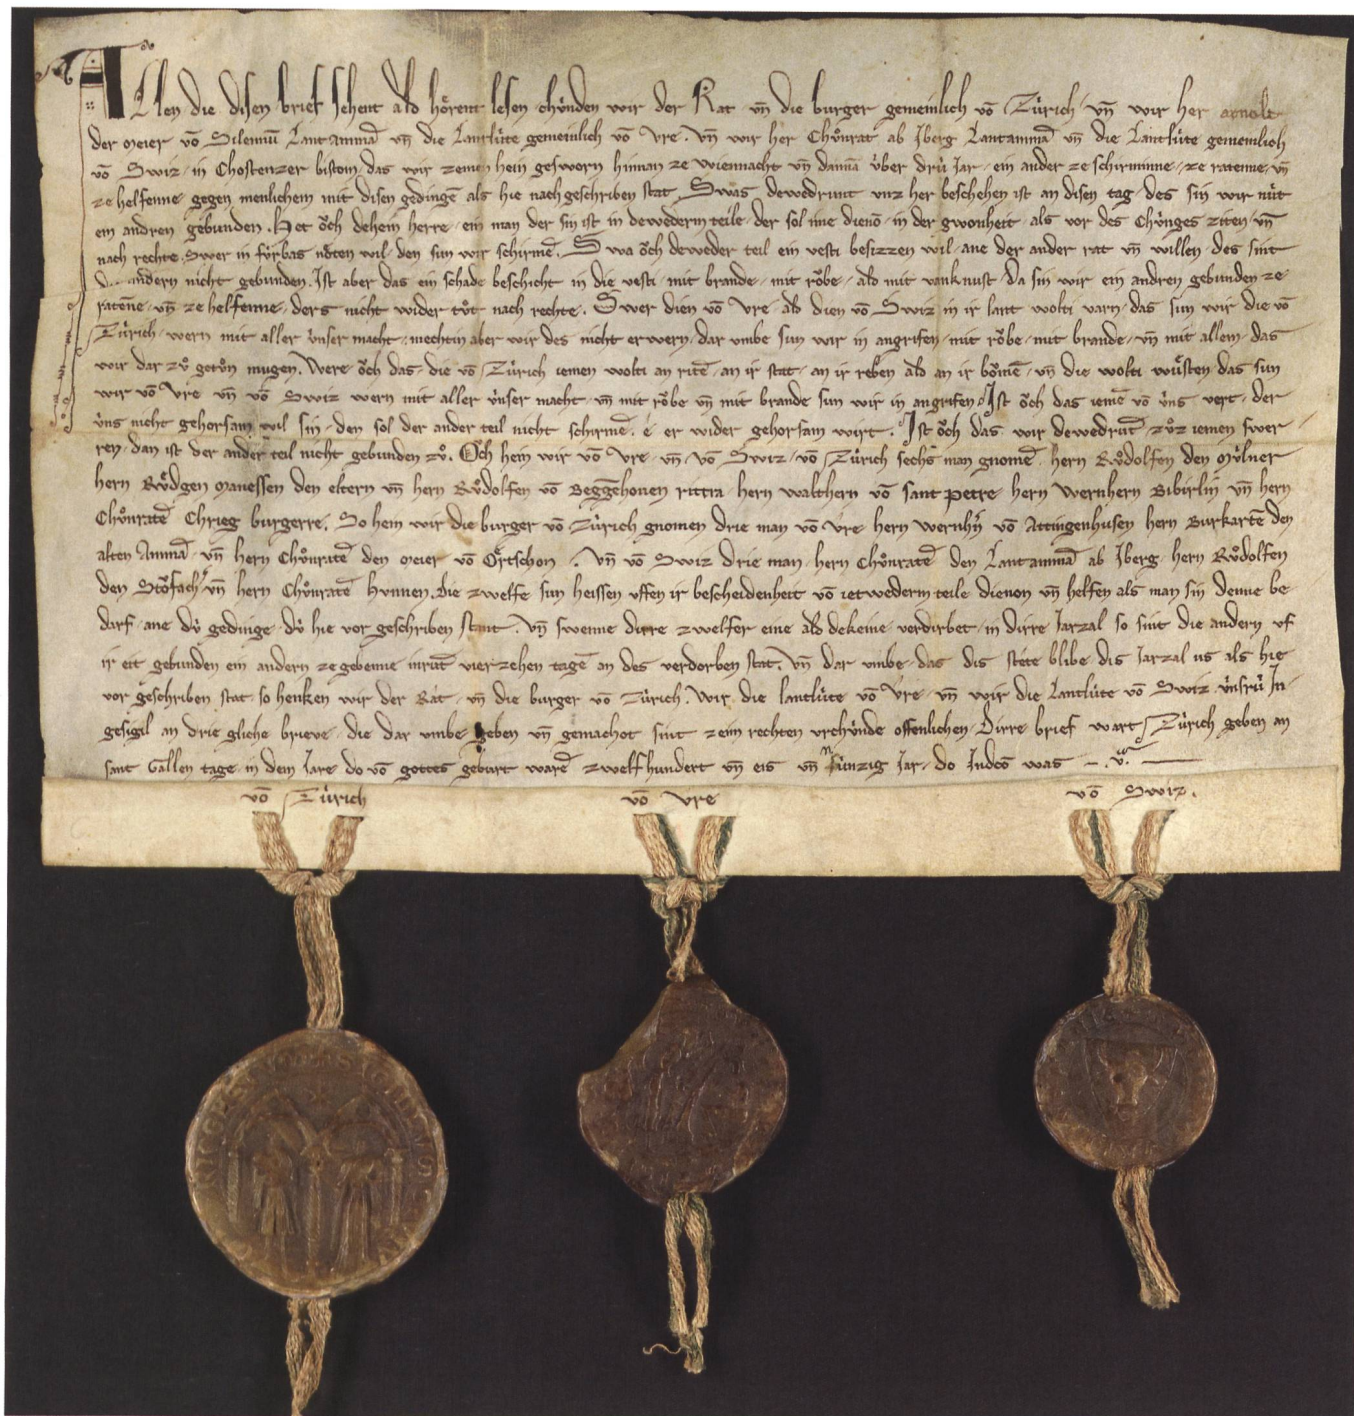 Allen die disen brief sehent ald hoͤrent lesen chúnden wir der Rat vn̄ die burger gemeinlich vō Zúrich vn̄ wir her arnolt
der meier vō Silennū Lantammā vn̄ die Lantlúte gemeinlich vō Vre. vn̄ wir her Chuͦnrat ab Jberg Lantammā vn̄ die Lantlúte gemeinlich
vō Swiz in Chostenzer bistom das wir zemen hein gesworn hinnan ze wiennacht vn̄ dannā úber drú Jar ein ander ze schirminne ze ratenne vn̄
ze helfenne gegen menlichem mit disen gedingē als hie nach geschriben stat. Swas dewedrunt vnz her beschehen ist an disen tag des sin wir nút
ein andren gebunden. Het oͧch dehein herre ein man der sin ist in dewederm teile der sol ime dienō in der gwonheit als vor des Chúnges ziten vn̄
nach rechte. Swer in fúrbas noͤten wil den sun wir schirmē. Swa oͧch deweder teil ein vesti besizzen wil ane der ander rat vn̄ willen des sint
andern nicht gebunden. Ist aber das ein schade beschicht in die vesti mit brande mit roͧbe ald mit vanknust da sin wir ein andren gebunden ze
ratēne vn̄ ze helfenne ders nicht wider tuͦt nach rechte. Swer dien vō Vre ald dien vō Swiz in ir lant wolti varn das sun wir die vō
Zúrich wern mit aller únser macht mechtin aber wir des nicht erwern dar umbe sun wir in angrifen mit roͧbe mit brande vn̄ mit allem das
wir dar zuͦ getuͦn mugen. Were oͧch das die vō Zúrich iemen wolti an ritē an ir stat an ir reben ald an ir boͧmē vn̄ die wolti wuͤsten das sun
wir vō Vre vn̄ vō Swiz wern mit aller únser macht vn̄ mit roͧbe vn̄ mit brande sun wir in angrifen. Jst oͧch das iemē vō úns vert der
úns nicht gehorsam wil sin den sol der ander teil nicht schirmē é er wider gehorsam wirt. Jst oͧch das wir dewedrūt zuͦz iemen swer
ren dan ist der ander teil nicht gebunden zuͦ. Oͧch hein wir vō Vre vn̄ vō Swiz vō Zúrich sechs man gnomē hern Ruͦdolfen den múlner
hern Ruͤdgen manessen den eltern vn̄ hern Ruͦdolfen vō Beggēhouen rittra hern walthern vō sant petre hern wernhern Bibirlin vn̄ hern
Chuͦnratē Chrieg burgerre. So hein wir die burger vō Zúrich gnomen drie man vō Vre hern wernhn̄ vō Attingenhusen hern Burkartē den
alten Ammā vn̄ hern Chuͦnratē den meier vō Oͤrtschon. vn̄ vō Swiz drie man hern Chuͦnratē den Lantammā ab Jberg hern Ruͦdolfen
den Stoͧfach vn̄ hern Chuͦnratē hunnen. die zwelfe sun heissen uffen ir bescheidenheit vō ietwederm teile dienon vn̄ helfen als man sin denne be
darf ane dú gedinge dú hie vor geschriben stant. vn̄ swenne dirre zwelfer eine ald dekeine verdirbet in dirre Jarzal so sint die andern uf
ir eit gebunden ein andern ze gebenne inrūt vierzehen tagē an des verdorben stat. vn̄ dar umbe das dis stéte blibe dis Jarzal us als hie
vor geschriben stat so henken wir der Rat vn̄ die burger vō Zúrich. wir die lantlúte vō Vre vn̄ wir die Lantlúte vō Swiz únsrú Jn
gesigil an drie gliche brieve die dar umbe geben vn̄ gemachot sint zeim rechten vrchúnde offenlichen. Dirre brief wart Zúrich geben an
sant Gallen tage in dem Jare do vō gottes geburt warē zwelfhundert vn̄ eis vn̄ núnzig Jar do Jndcō was v.
vō Zúrich vō Vre vō Swiz.